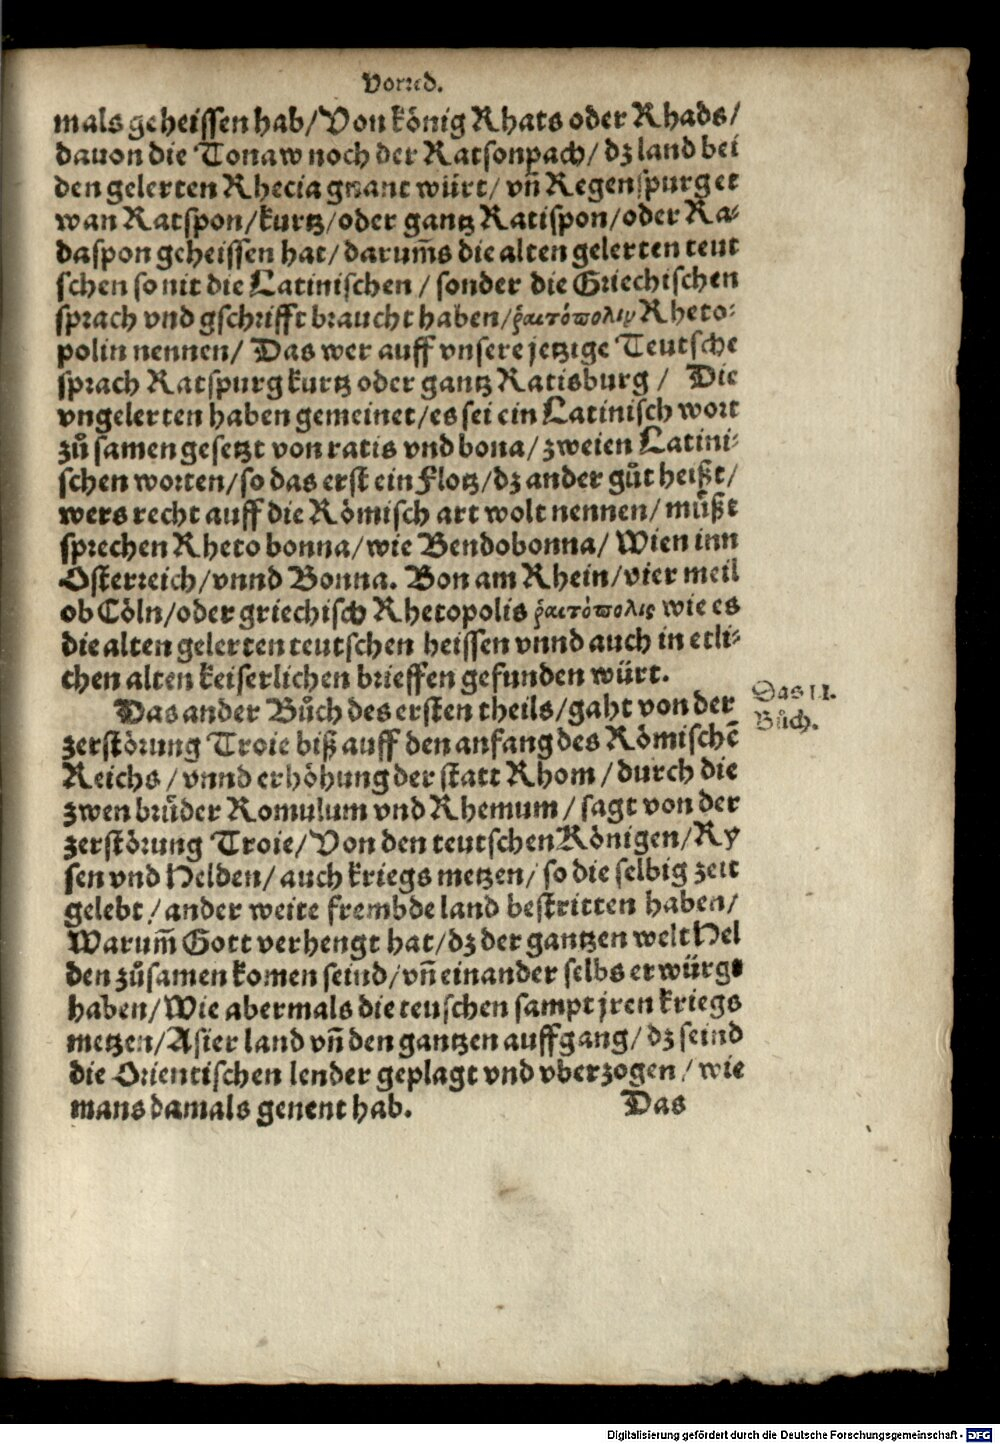 Vorred.
mals geheissen hab/Von künig Rhats oder Rhads/
dauon die Tonaw noch der Ratsonpach/dz land bei
den gelerten Rhecia gnant würt/vñ Regenspurg et
wan Ratspon/kurtz/oder gantz Ratispon/oder Ra-
daspon geheissen hat/darum̃s die alten gelerten teut
schen so nit die Latinischen/sonder die Griechischen
sprach vnd gschrifft braucht haben/ῥαιτόπολιν Rheto-
polin nennen/ Das wer auff vnsere jetzige Teutsche
sprach Ratspurg kurtz oder gantz Ratisburg/ Die
vngelerten haben gemeinet/es sei ein Latinisch wort
zů samen gesetzt von ratis vnd bona/zweien Latini-
schen worten/so das erst ein Flotz/dz ander gůt heißt/
wers recht auff die Römisch art wolt nennen/můßt
sprechen Rheto bonna/wie Bendobonna/Wien inn
Osterreich/vnnd Bonna. Bon am Rhein/vier meil
ob Cöln/oder griechisch Rhetopolis ῥαιτόπολις wie es
die alten gelerten teutschen heissen vnnd auch in etli-
chen alten keiserlichen brieffen gefunden würt.
Das ander Bůch des ersten theils/gaht von der
Das II.
Bůch.
zerstörung Troie biß auff den anfang des Römischẽ
Reichs/vnnd erhöhung der statt Rhom/durch die
zwen brůder Romulum vnd Rhemum/sagt von der
zerstörung Troie/Von den teutschen Königen/Ry
sen vnd Helden/auch kriegs metzen/so die selbig zeit
gelebt/ander weite frembde land bestritten haben/
Warum̃ Gott verhengt hat/dz der gantzen welt Hel
den zůsamen komen seind/vñ einander selbs erwürgt
haben/Wie abermals die teuschen sampt jren kriegs
metzen/Asier land vñ den gantzen auffgang/dz seind
die Orientischen lender geplagt vnd vberzogen/wie
mans damals genent hab.
Das
Digitalisierung gefördert durch die Deutsche Forschungsgemeinschaft - DFG